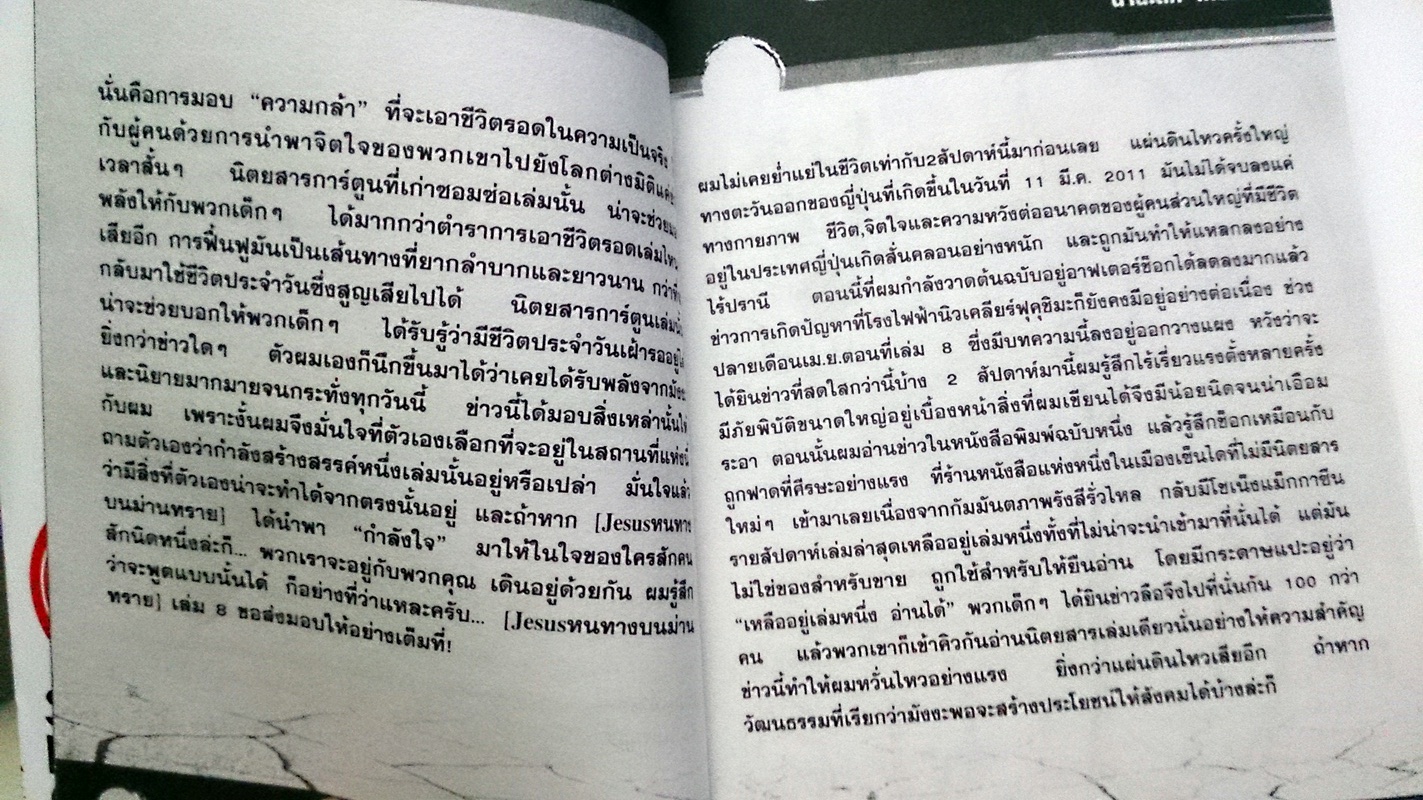 ผมไม่เคยย่ำแย่ในชีวิตเท่ากับ2สัปดาห์นี้มาก่อนเลย แผ่นดินไหวครั้งใหญ่
ทางตะวันออกของญี่ปุ่นที่เกิดขึ้นในวันที่ 11 มี.ค. 2011 มันไม่ได้จบลงแค่
ทางกายภาพ ชีวิต,จิตใจและความหวังต่ออนาคตของผู้คนส่วนใหญ่ที่มีชีวิต
อยู่ในประเทศญี่ปุ่นเกิดสั่นคลอนอย่างหนัก และถูกมันทำให้แหลกลงอย่าง
ไร้ปรานี ตอนนี้ที่ผมกำลังวาดต้นฉบับอยู่อาฟเตอร์ช็อกได้ลดลงมากแล้ว
ข่าวการเกิดปัญหาที่โรงไฟฟ้านิวเคลียร์ฟุคุชิมะก็ยังคงมีอยู่อย่างต่อเนื่อง ช่วง
ปลายเดือนเม.ย.ตอนที่เล่ม 8 ซึ่งมีบทความนี้ลงอยู่ออกวางแผง หวังว่าจะ
ได้ยินข่าวที่สดใสกว่านี้บ้าง 2 สัปดาห์มานี้ผมรู้สึกไร้เรี่ยวแรงตั้งหลายครั้ง
มีภัยพิบัติขนาดใหญ่อยู่เบื้องหน้าสิ่งที่ผมเขียนได้จึงมีน้อยนิดจนน่าเอือม
ระอา ตอนนั้นผมอ่านข่าวในหนังสือพิมพ์ฉบับหนึ่ง แล้วรู้สึกช็อกเหมือนกับ
ถูกฟาดที่ศีรษะอย่างแรง ที่ร้านหนังสือแห่งหนึ่งในเมืองเซ็นไดที่ไม่มีนิตยสาร
ใหม่ๆ เข้ามาเลยเนื่องจากกัมมันตภาพรังสีรั่วไหล กลับมีโชเน็งแม็กกาซีน
รายสัปดาห์เล่มล่าสุดเหลืออยู่เล่มหนึ่งทั้งที่ไม่น่าจะนำเข้ามาที่นั่นได้ แต่มัน
ไม่ใช่ของสำหรับขาย ถูกใช้สำหรับให้ยืนอ่าน โดยมีกระดาษแปะอยู่ว่า
“เหลืออยู่เล่มหนึ่ง อ่านได้” พวกเด็กๆ ได้ยินข่าวลือจึงไปที่นั่นกัน 100 กว่า
คน แล้วพวกเขาก็เข้าคิวกันอ่านนิตยสารเล่มเดียวนั่นอย่างให้ความสำคัญ
ข่าวนี้ทำให้ผมหวั่นไหวอย่างแรง ยิ่งกว่าแผ่นดินไหวเสียอีก ถ้าหาก
วัฒนธรรมที่เรียกว่ามังงะพอจะสร้างประโยชน์ให้สังคมได้บ้างล่ะก็
นั่นคือการมอบ “ความกล้า” ที่จะเอาชีวิตรอดในความเป็นจริง
กับผู้คนด้วยการนำพาจิตใจของพวกเขาไปยังโลกต่างมิติ
เวลาสั้นๆ นิตยสารการ์ตูนที่เก่าซอมซ่อเล่มนั้น น่าจะช่วย
พลังให้กับพวกเด็กๆ ได้มากกว่าตำราการเอาชีวิตรอดเล่มไหน
เสียอีก การฟื้นฟูมันเป็นเส้นทางที่ยากลำบากและยาวนาน
กลับมาใช้ชีวิตประจำวันซึ่งสูญเสียไปได้ นิตยสารการ์ตูนเล่มนั้น
น่าจะช่วยบอกให้พวกเด็กๆ ได้รับรู้ว่ามีชีวิตประจำวันเฝ้ารออยู่
ยิ่งกว่าข่าวใดๆ ตัวผมเองก็นึกขึ้นมาได้ว่าเคยได้รับพลังจากมังงะ
และนิยายมากมายจนกระทั่งทุกวันนี้ ข่าวนี้ได้มอบสิ่งเหล่านั้นให้
กับผม เพราะงั้นผมจึงมั่นใจที่ตัวเองเลือกที่จะอยู่ในสถานที่แห่งนี้
ถามตัวเองว่ากำลังสร้างสรรค์หนึ่งเล่มนั้นอยู่หรือเปล่า มั่นใจแล้ว
ว่ามีสิ่งที่ตัวเองน่าจะทำได้จากตรงนั้นอยู่ และถ้าหาก [Jesusหนทาง
บนม่านทราย] ได้นำพา “กำลังใจ” มาให้ในใจของใครสักคน
สักนิดหนึ่งล่ะก็... พวกเราจะอยู่กับพวกคุณ เดินอยู่ด้วยกัน ผมรู้สึก
ว่าจะพูดแบบนั้นได้ ก็อย่างที่ว่าแหละครับ... [Jesusหนทางบนม่าน
ทราย] เล่ม 8 ขอส่งมอบให้อย่างเต็มที่!